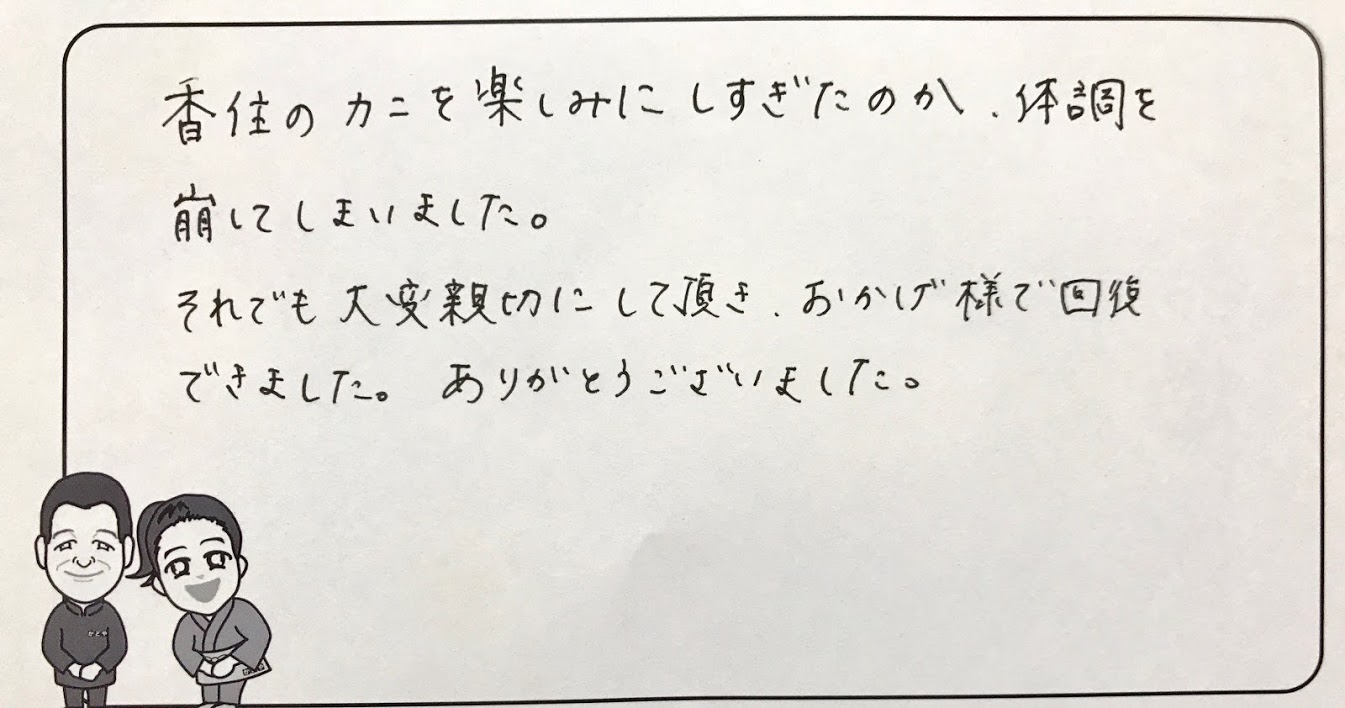 香住のカニを楽しみにしすぎたのか、体調を
崩してしまいました。
それでも大変親切にして頂き、おかげ様で回復
できました。 ありがとうございました。
かどや